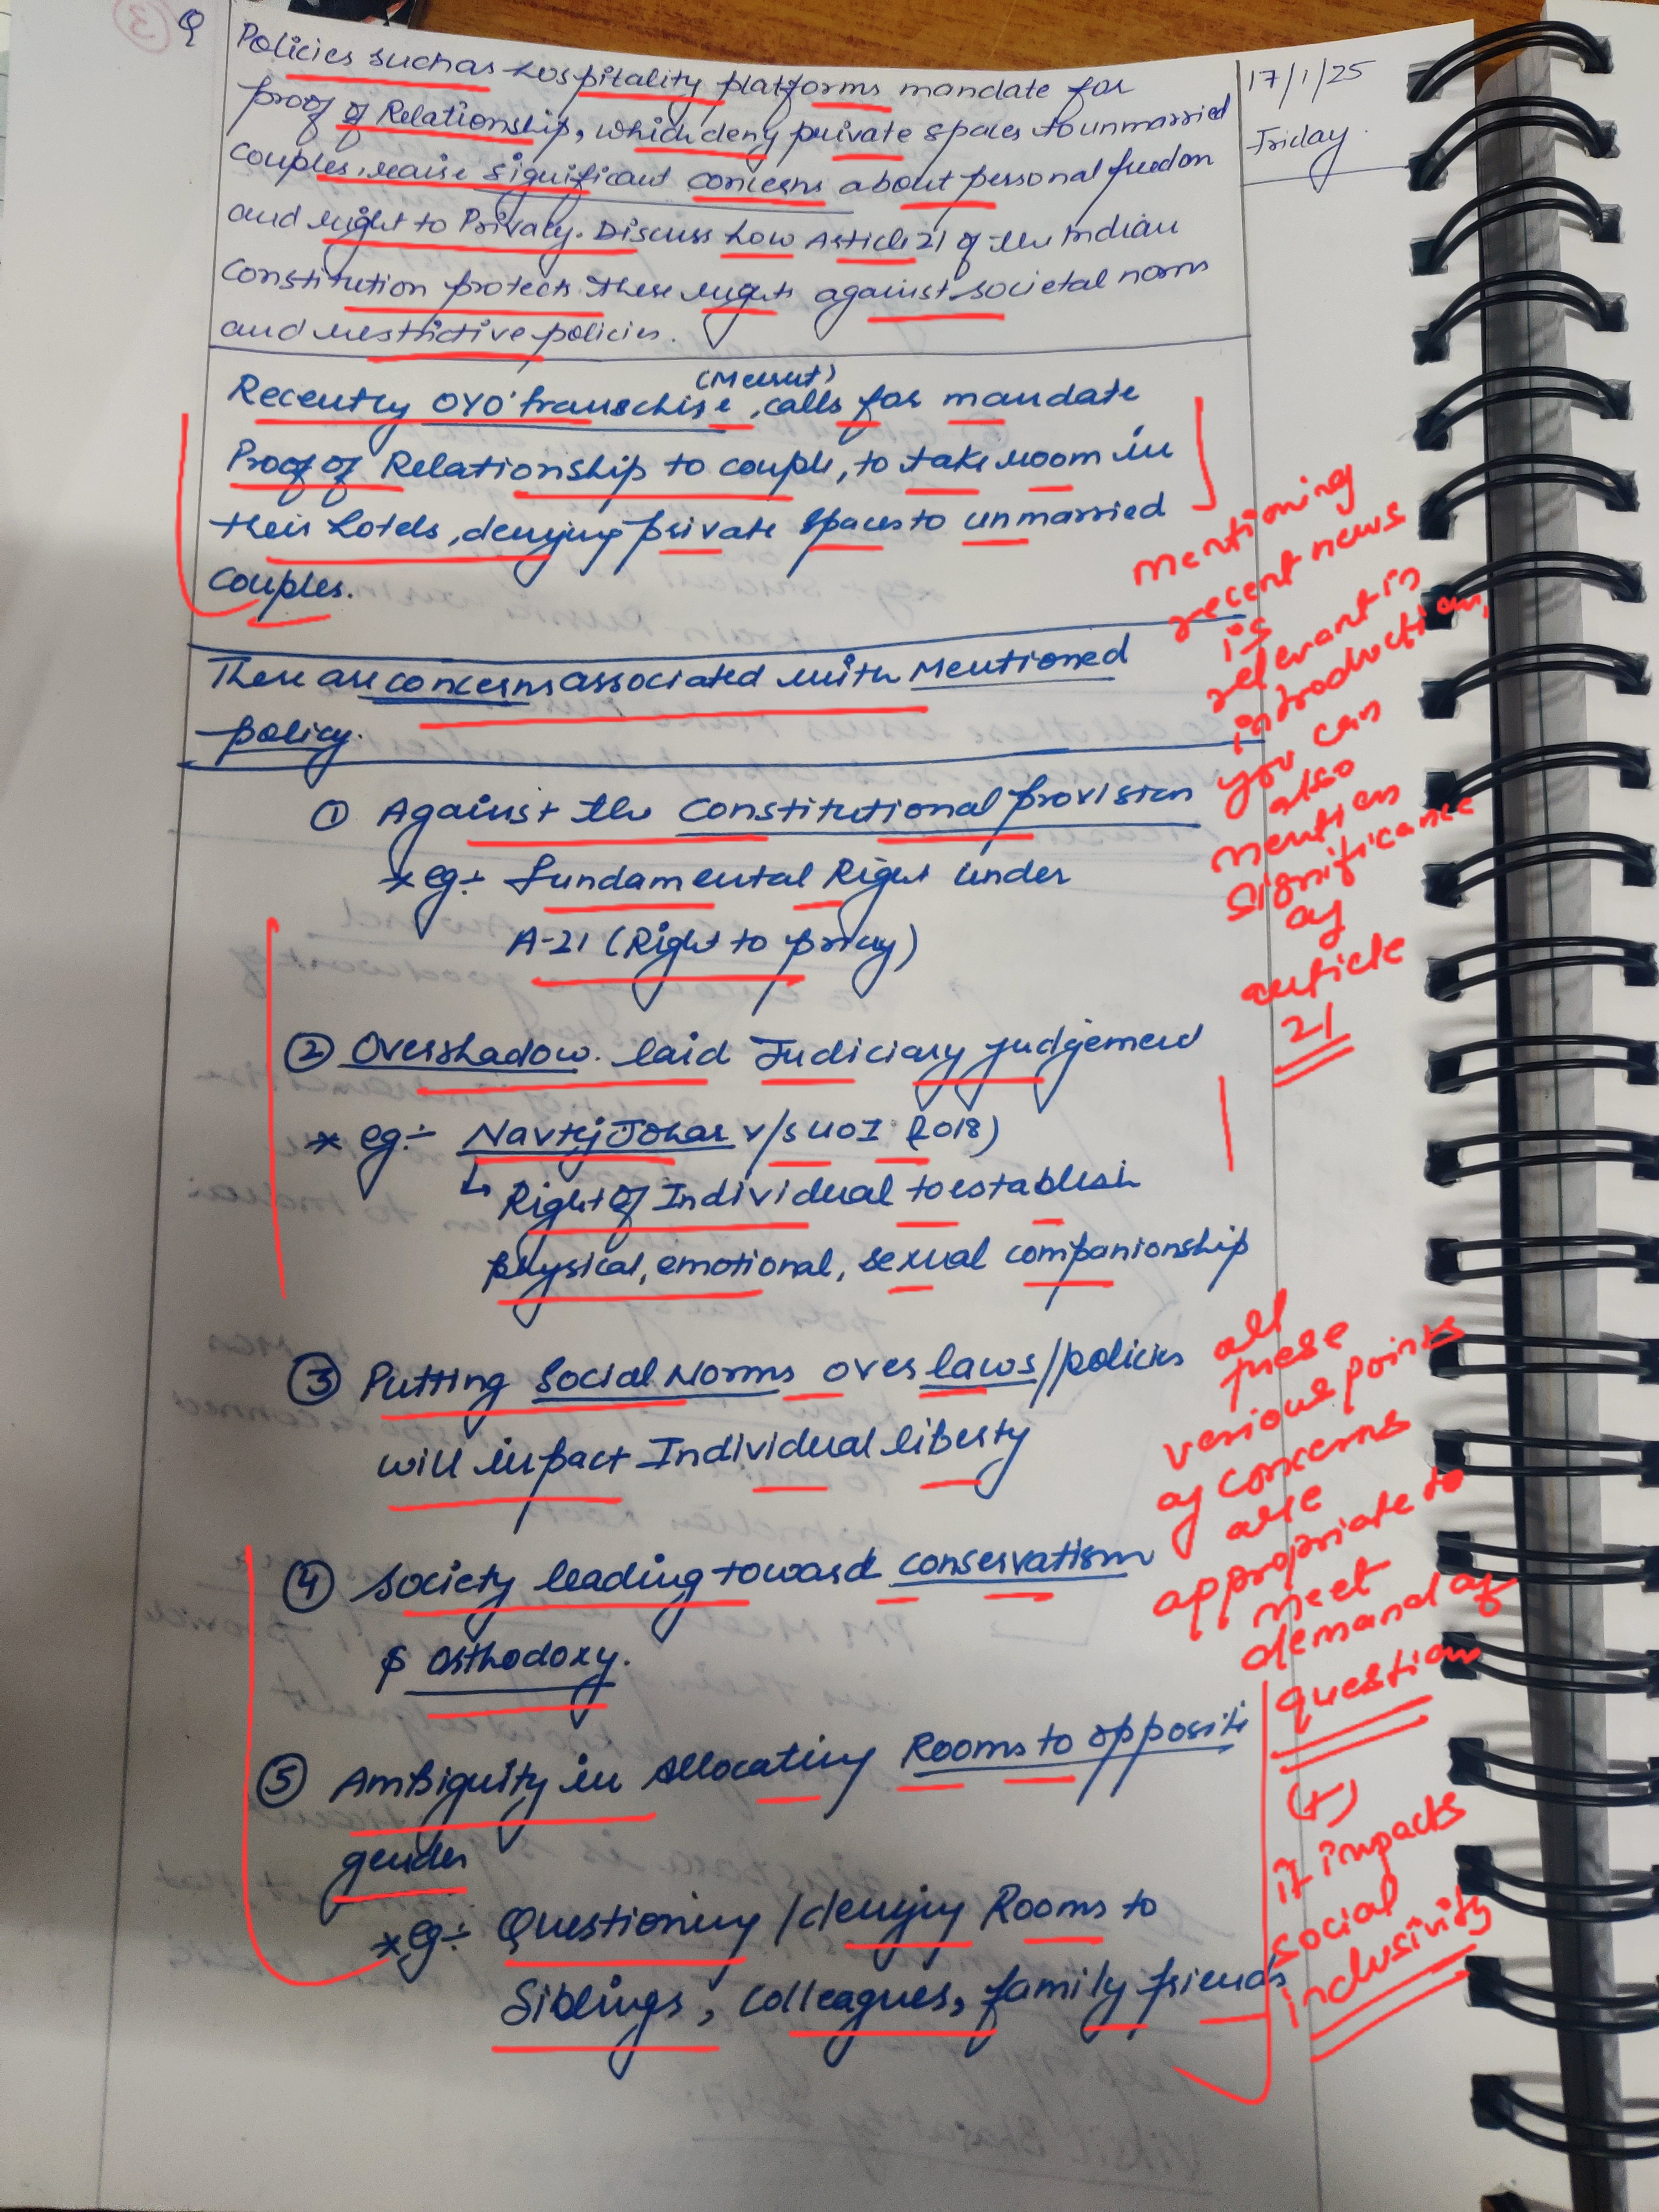 Q
Policies such as hospitality platforms mandate for
proof of Relationship, which deny private spaces to unmarried
couples, raise significant concerns about personal freedon
and right to Privacy. Discuss how Article 21 of the Indian
Constitution protects these rights against societal norms
and restrictive policies.
17/1/25
Friday
(Meerut)
Recently OYO franchise, calls for mandate
Proof of Relationship to couple, to take room in
their hotels, denying private spaces to unmarried
couples.
mentioning
recent news
is
relevant in
introduction,
you can
also
mention
significance
of
article
21
There are concerns associated with Mentioned
policy.
① Against the Constitutional provision
* eg:- fundamental Right under
A-21 (Right to privay)
② Overshadow laid Judiciary judgement
* eg:- Navtej Johar v/s UOI (2018)
↳ Right of Individual to establish
physical, emotional, sexual companionship
③ Putting Social Norms over laws/policies
will impact Individual liberty
④ Society leading toward conservatism
& orthodoxy.
all
these
various points
of concerns
are
appropriate to
meet
demand of
question
⑤ Ambiguity in Allocating Rooms to opposite
gender
* eg:- Questioning / denying Rooms to
Siblings, colleagues, family friends
(+)
it impacts
social
inclusivity